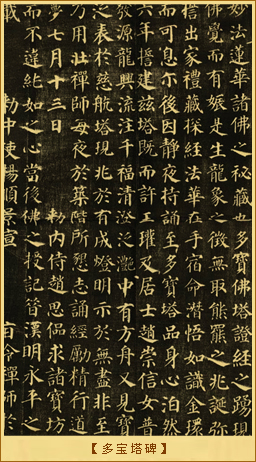 妙法蓮華諸佛之秘藏也多寶佛塔證經之踴現
佛覺而有娠是生龍象之徵無取熊羆之兆誕弥
誓出家禮藏探經法華在手宿命潛悟如識金環
而可息尒後因靜夜持誦至多寶塔品身心泊然
六年誓建兹塔既而許王瓘及居士趙崇信女普
發源龍興流注千福清澄泛灧中有方舟又見寶
泛表於慈航塔現兆於有成燈明示於無盡非至
乃用壯禪師每夜於築階所懇志誦經勵精行道
夢七月十三日 勑内侍趙思侃求諸寶坊
而不違純如之心當後佛之授記昔漢明永平之
勑中使楊順景宣 旨令禪師於
【多宝塔碑】